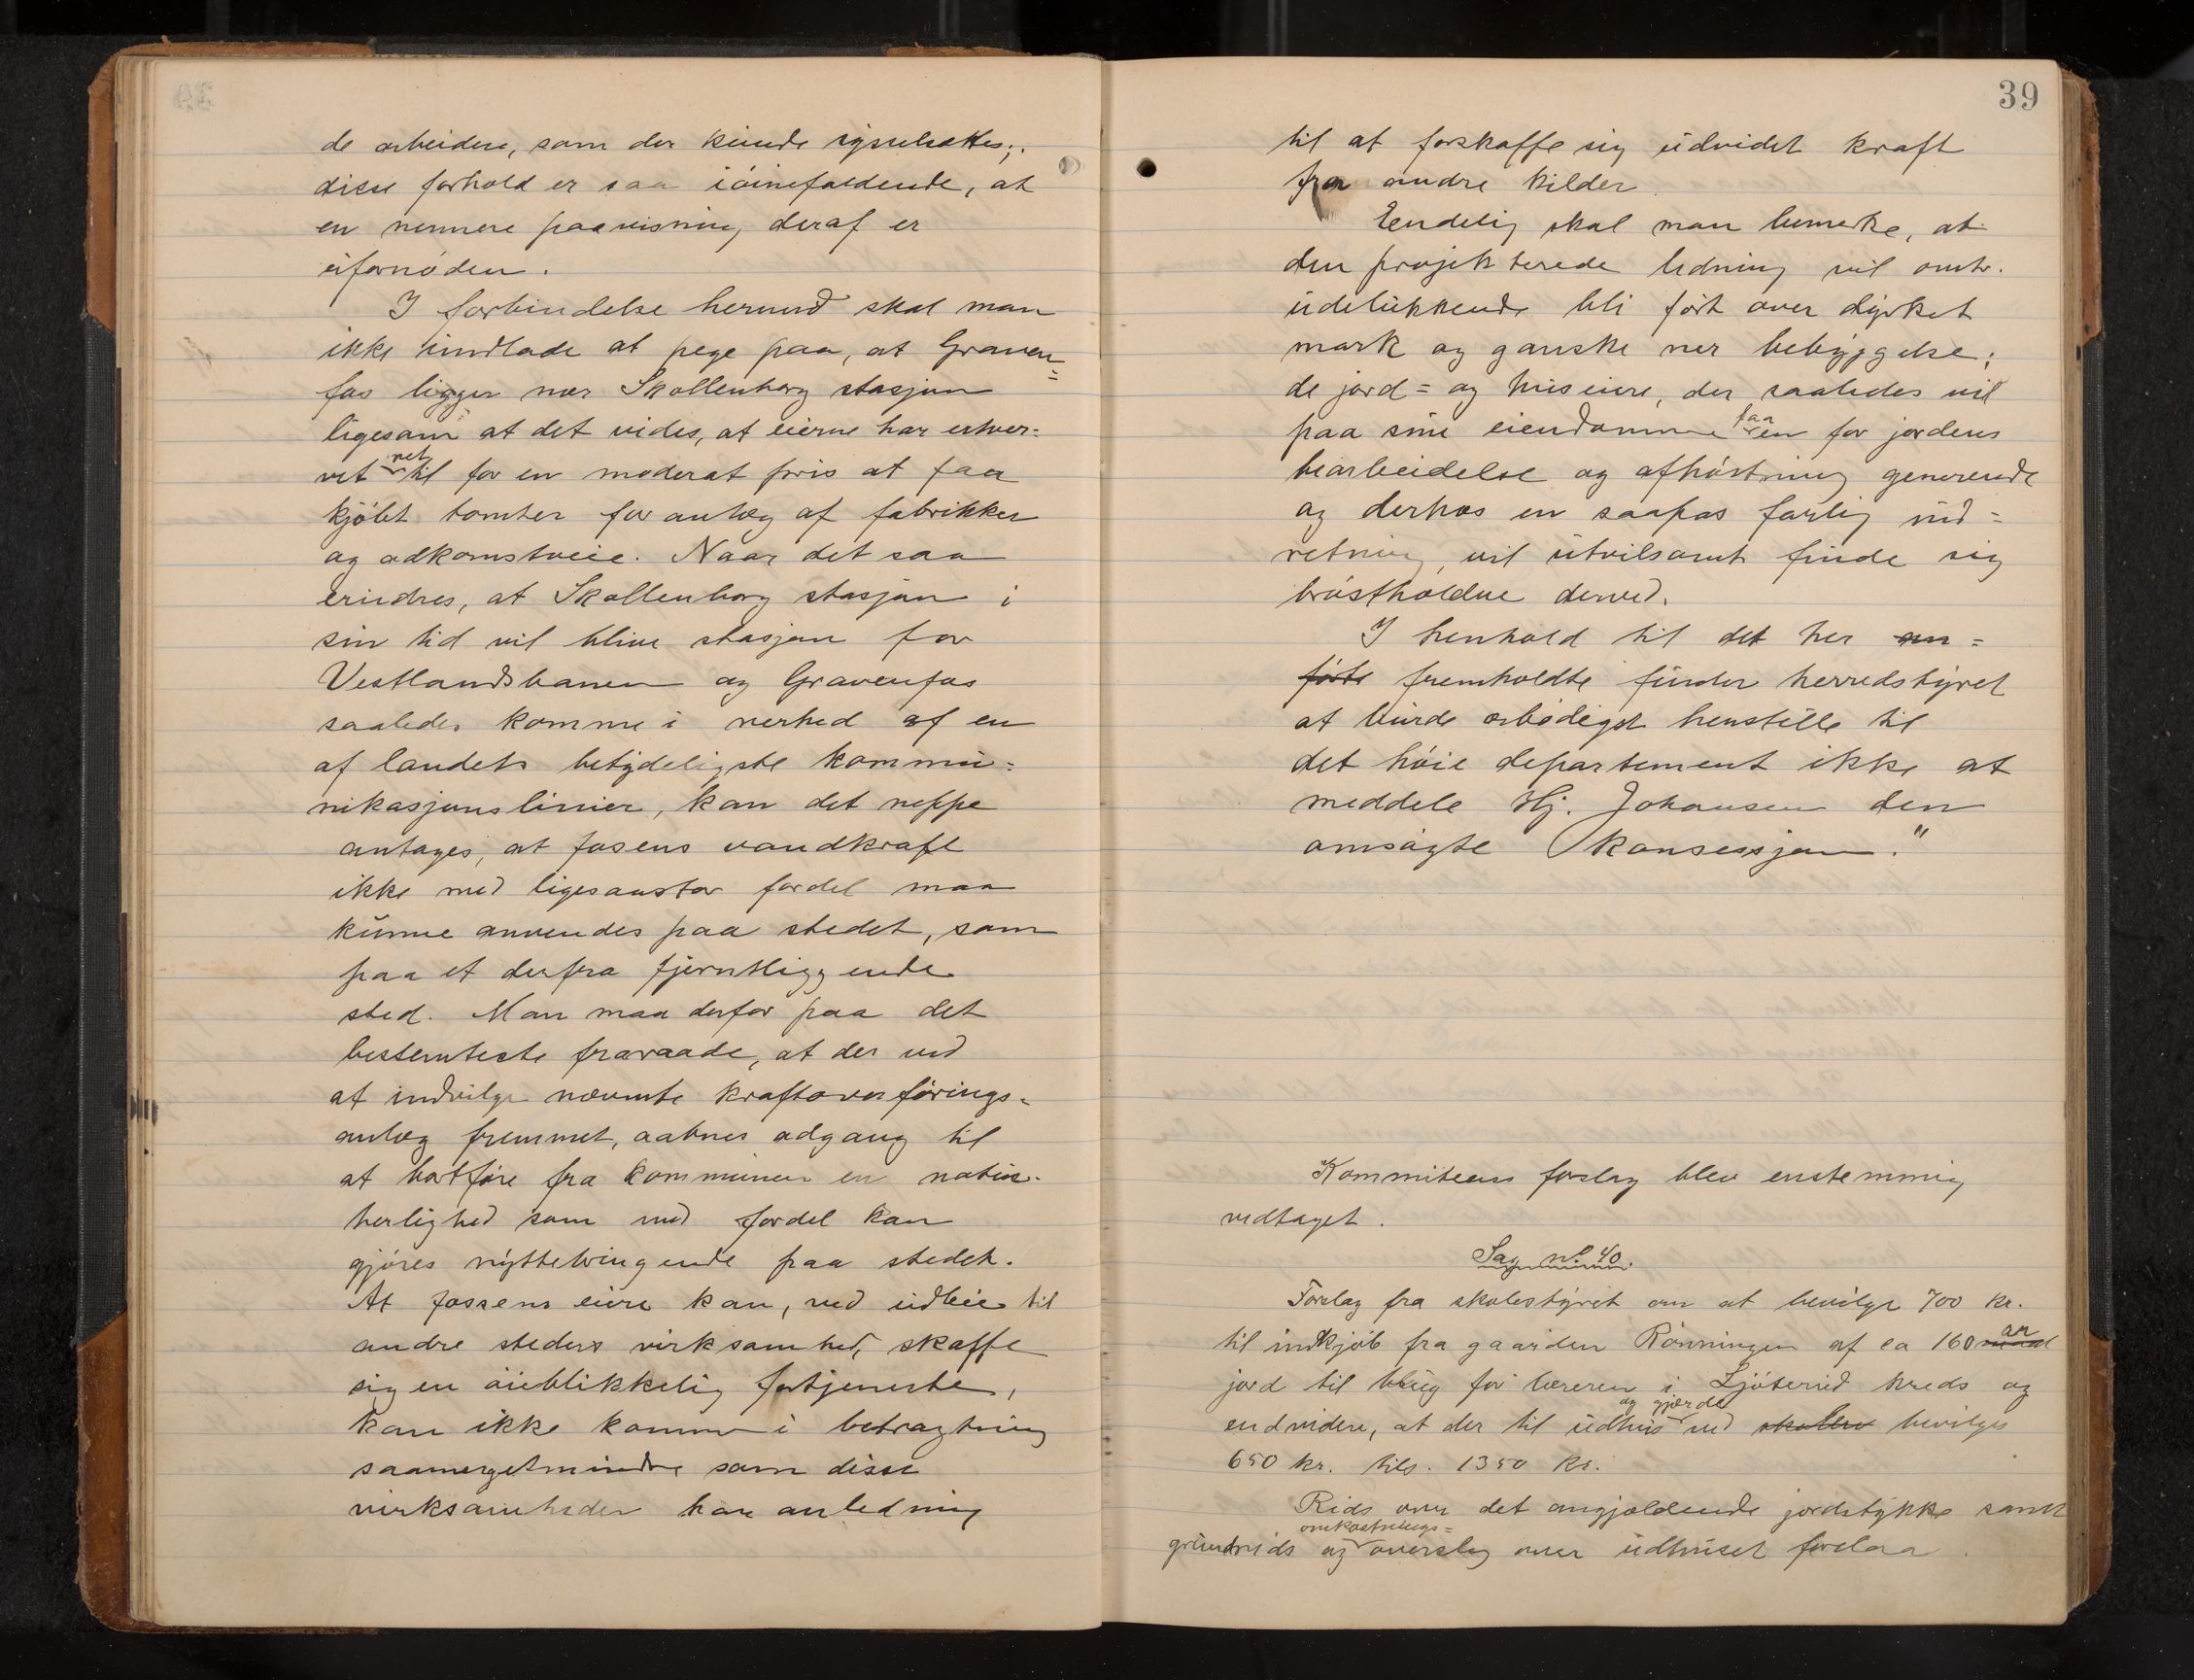 de arbeidere, som der kunde sysselsættes;
disse forhold er saa iöinefaldende, at
en nermere paavisning deraf er
ufornöden.
I forbindelse hermed skal man
ikke undlade at pege paa, at Graven=
fos ligger nær Skollenborg stasjon
ligesom at det vides, at eierne har erhver=
vet ret til for en moderat pris at faa
kjöbt tomter for anlæg af fabrikker
og adkomstveie. Naar det saa
erindres, at Skollenborg stasjon i
sin tid vil blive stasjon for
Vestlandsbanen og Gravenfos
saaledes komme i nerhed af en
af landets betydeligste kommu=
nikasjonslinier, kan det neppe
antages, at fosens vandkraft
ikke med ligesaastor fordel maa
kunne anvendes paa stedet, som
paa et derfra fjerntliggende
sted. Man maa derfor paa det
bestemteste fraraade, at der ved
at indvilge nævnte kraftoverförings=
anlæg fremmet, aabnes adgang til
at bortföre fra kommunen en natur=
herlighed som med fordel kan
gjöres nyttebringende paa stedet.
At fossens eiere kan, ved udleie til
andre steders virksomhed, skaffe
sig en öieblikkelig fortjeneste,
kan ikke komme i betragtning
saameget mindre som disse
virksomheder har anledning
39
til at forskaffe sig udvidet kraft
fra andre kilder.
Eendelig skal man bemerke, at
den projekterede ledning vil omtr.
udelukkende bli fört over dyrket
mark og ganske ner bebyggelse;
de jord= og huseiere, der saaledes vil
paa sine eiendomme faa en for jordens
bearbeidelse og afhöstning generende
og derhos en saapas farlig ind=
retning, vil utvilsomt finde sig
bröstholdne derved.
I henhold til det her an=
förte fremholdte finder herredstyret
at burde ærbödigst henstille til
det höie departement ikke at
meddele Hj. Johansen den
omsögte konsessjon."
Kommiteens forslag blev enstemmig
vedtaget.
Sag nr. 40.
Forslag fra skolestyret om at bevilge 700 kr.
til indkjöb fra gaarden Rönningen af ca 160 ar
jord til brug for læreren i Ljöterud kreds og
endvidere, at der til udhus og gjærde ved skolen bevilges
650 kr. tils. 1350 kr.
Rids over det angjældende jordstykke samt
grundrids og omkostnings= overslag over udhuset forelaa.